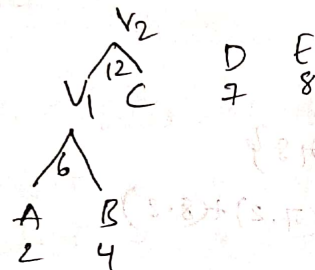 V2
12
V1 C D E
7 8
6
A B
2 4